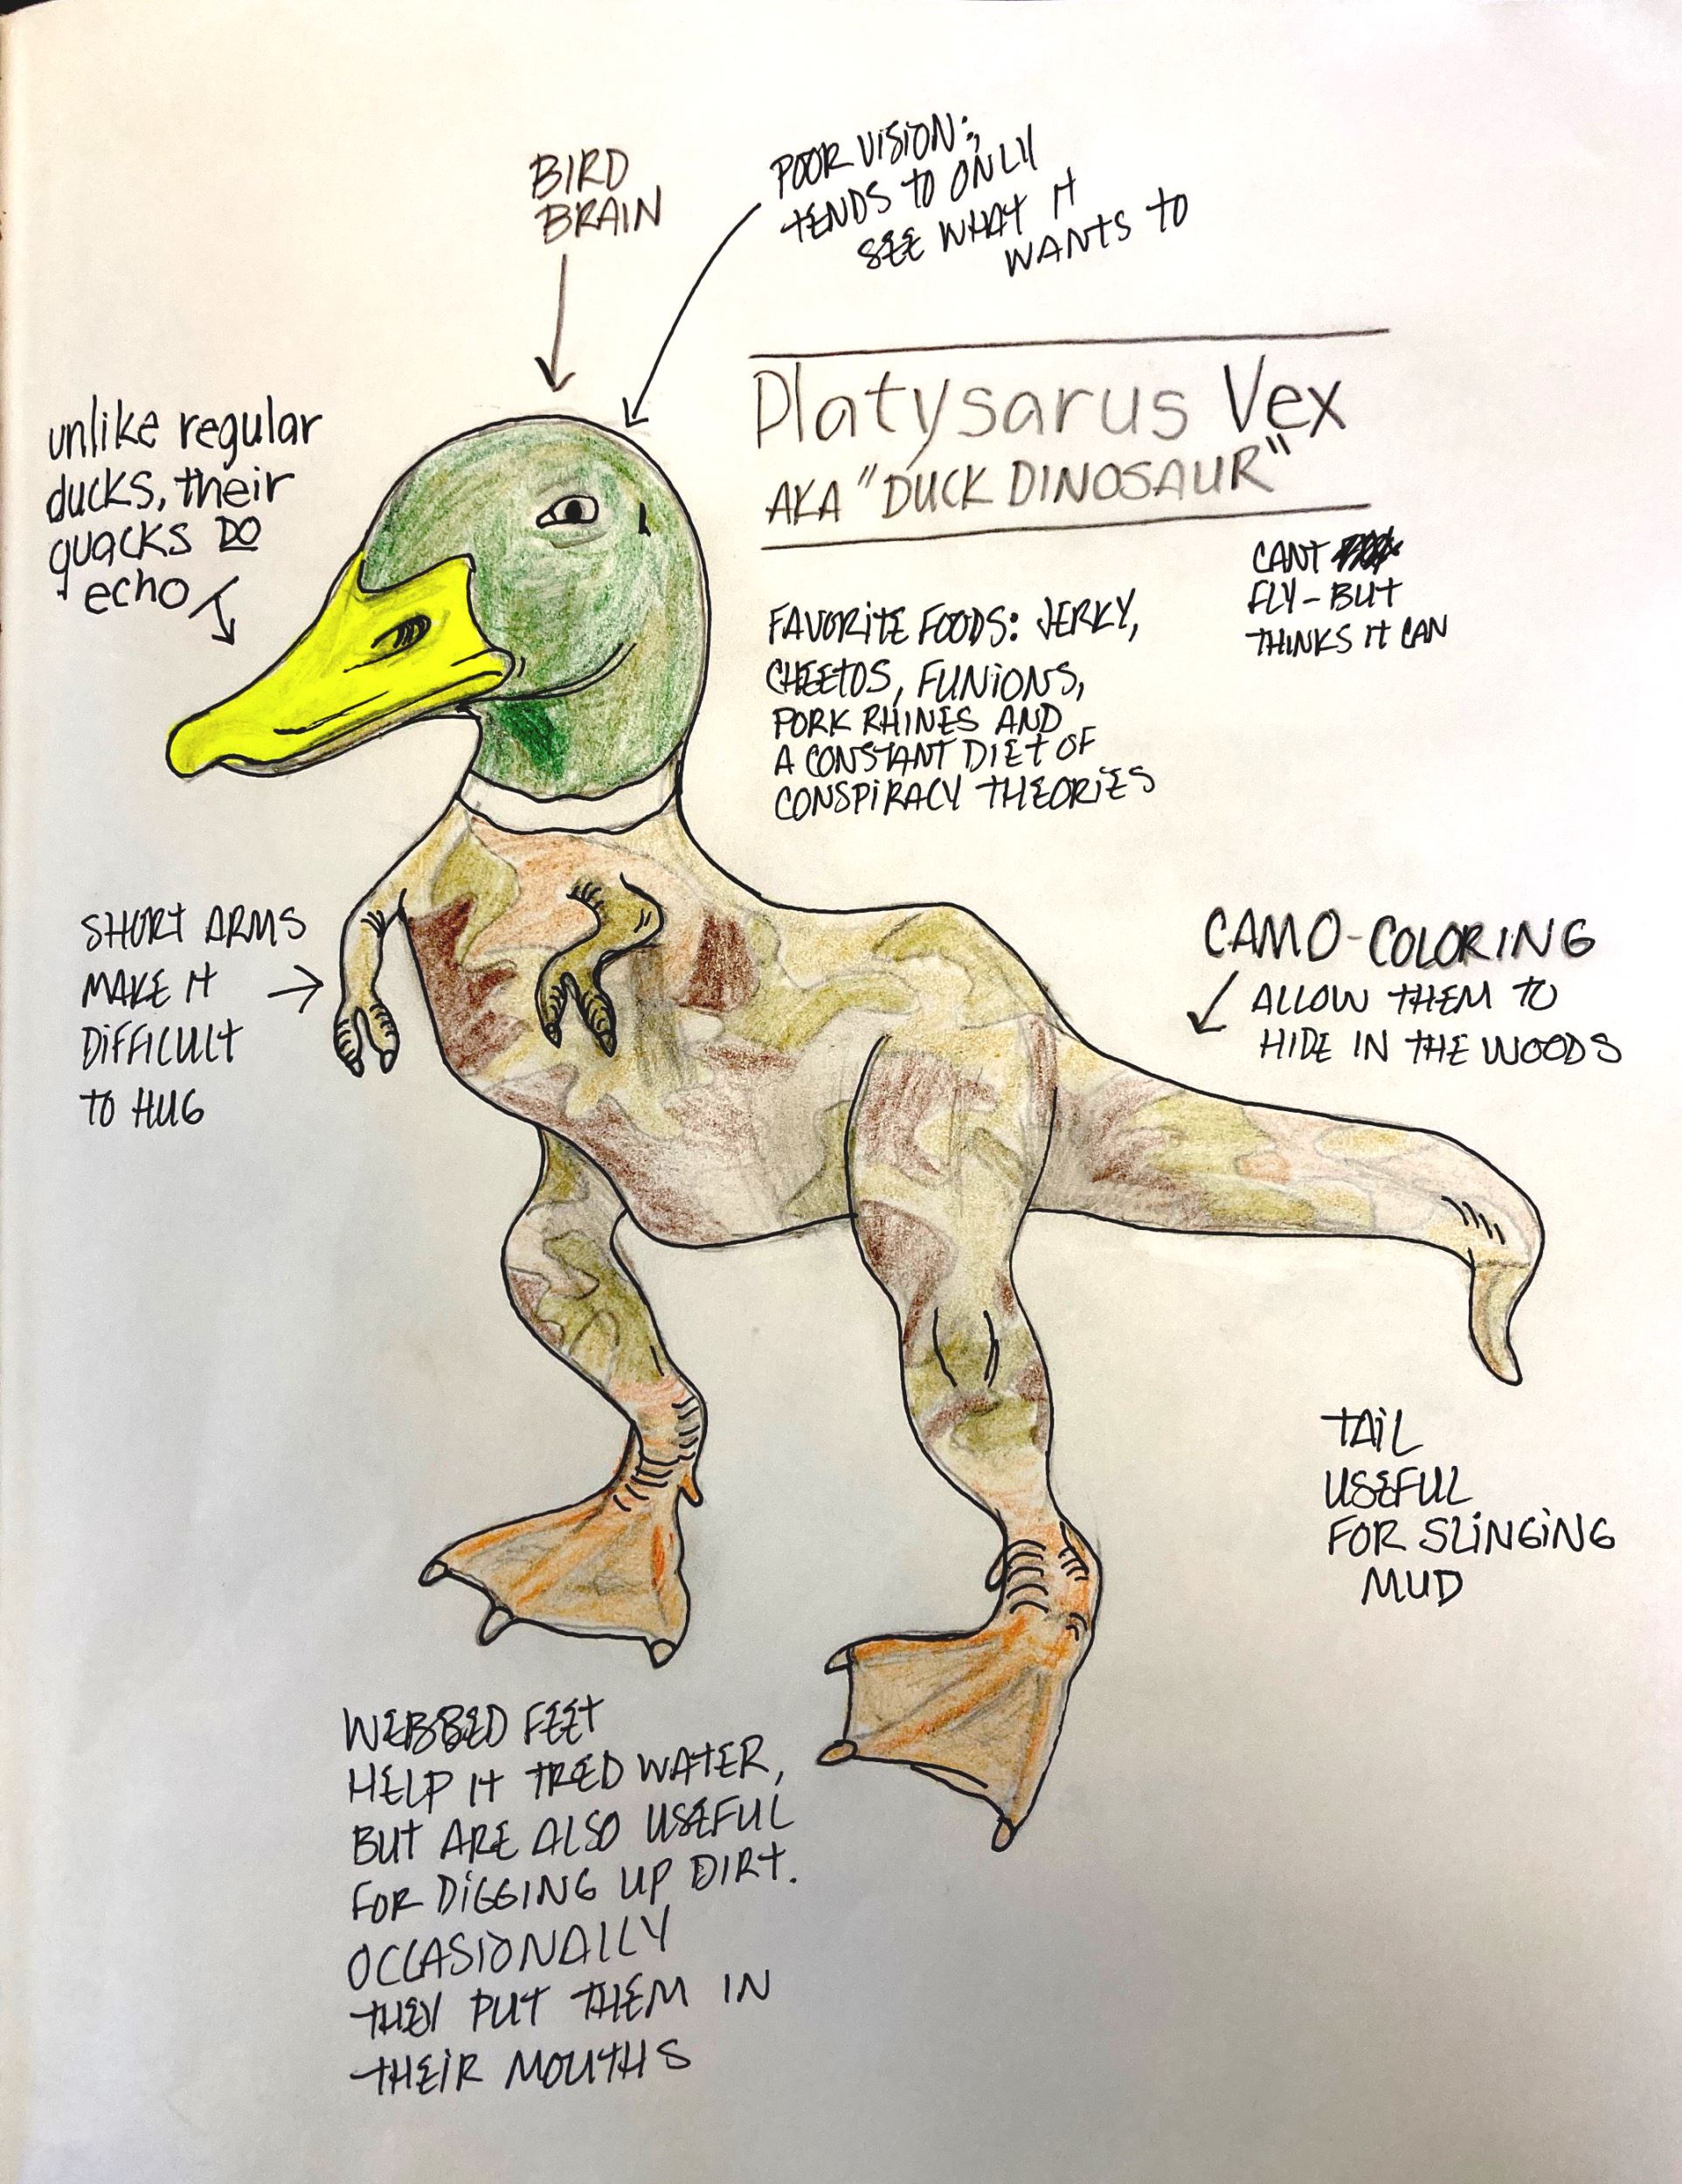 BIRD
BRAIN
POOR VISION;
TENDS TO ONLY
SEE WHAT IT
WANTS TO
Platysarus Vex
AKA "DUCK DINOSAUR"
unlike regular
ducks, their
quacks DO
echo
CANT
FLY-BUT
THINKS IT CAN
FAVORITE FOODS: JERKY,
CHEETOS, FUNIONS,
PORK RHINES AND
A CONSTANT DIET OF
CONSPIRACY THEORIES
SHORT ARMS
MAKE IT
DIFFICULT
TO HUG
CAMO-COLORING
ALLOW THEM TO
HIDE IN THE WOODS
TAIL
USEFUL
FOR SLINGING
MUD
WEBBED FEET
HELP IT TRED WATER,
BUT ARE ALSO USEFUL
FOR DIGGING UP DIRT.
OCCASIONALLY
THEY PUT THEM IN
THEIR MOUTHS